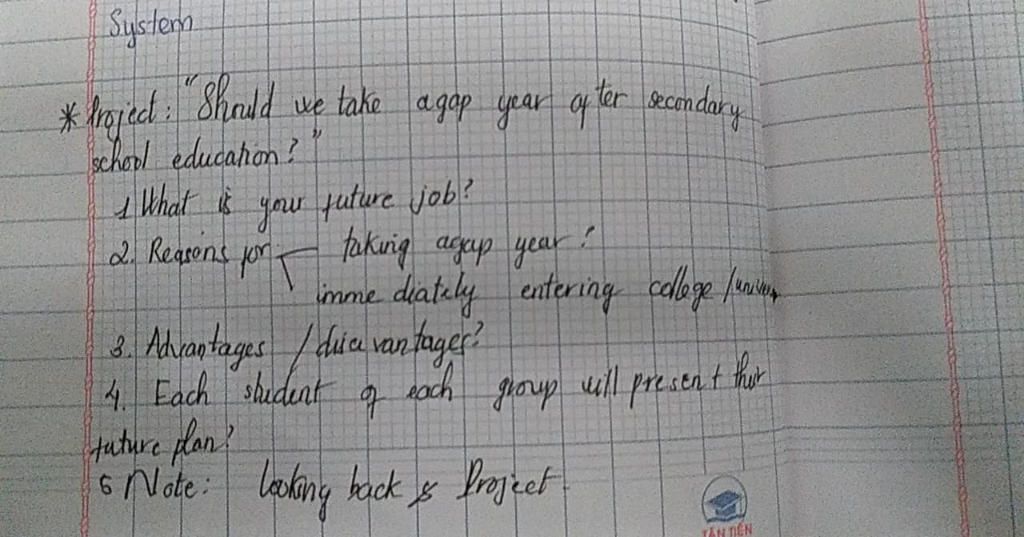 System
* Project: "Should we take a gap year after secondary
school education?"
1 What is your future job?
2. Reasons for taking a gap year?
immediately entering college / univer
3. Advantages / disavantages?
4. Each student of each group will present their
future plan?
5 Note: Looking back & Project.
TÂN TIẾN